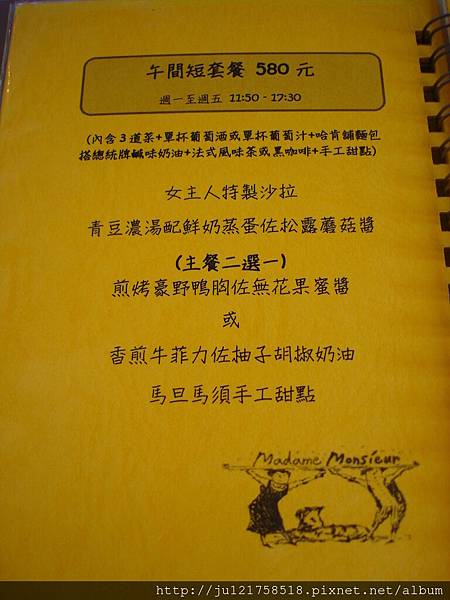 午間短套餐 580 元
週一至週五 11:50 - 17:30
(內含 3 道菜+單杯葡萄酒或單杯葡萄汁+哈肯舖麵包
搭總統牌鹹味奶油+法式風味茶或黑咖啡+手工甜點)
女主人特製沙拉
青豆濃湯配鮮奶蒸蛋佐松露蘑菇醬
(主餐二選一)
煎烤豪野鴨胸佐無花果蜜醬
或
香煎牛菲力佐柚子胡椒奶油
馬旦馬須手工甜點
Madame Monsieur
http://ju121758518.pixnet.net/album